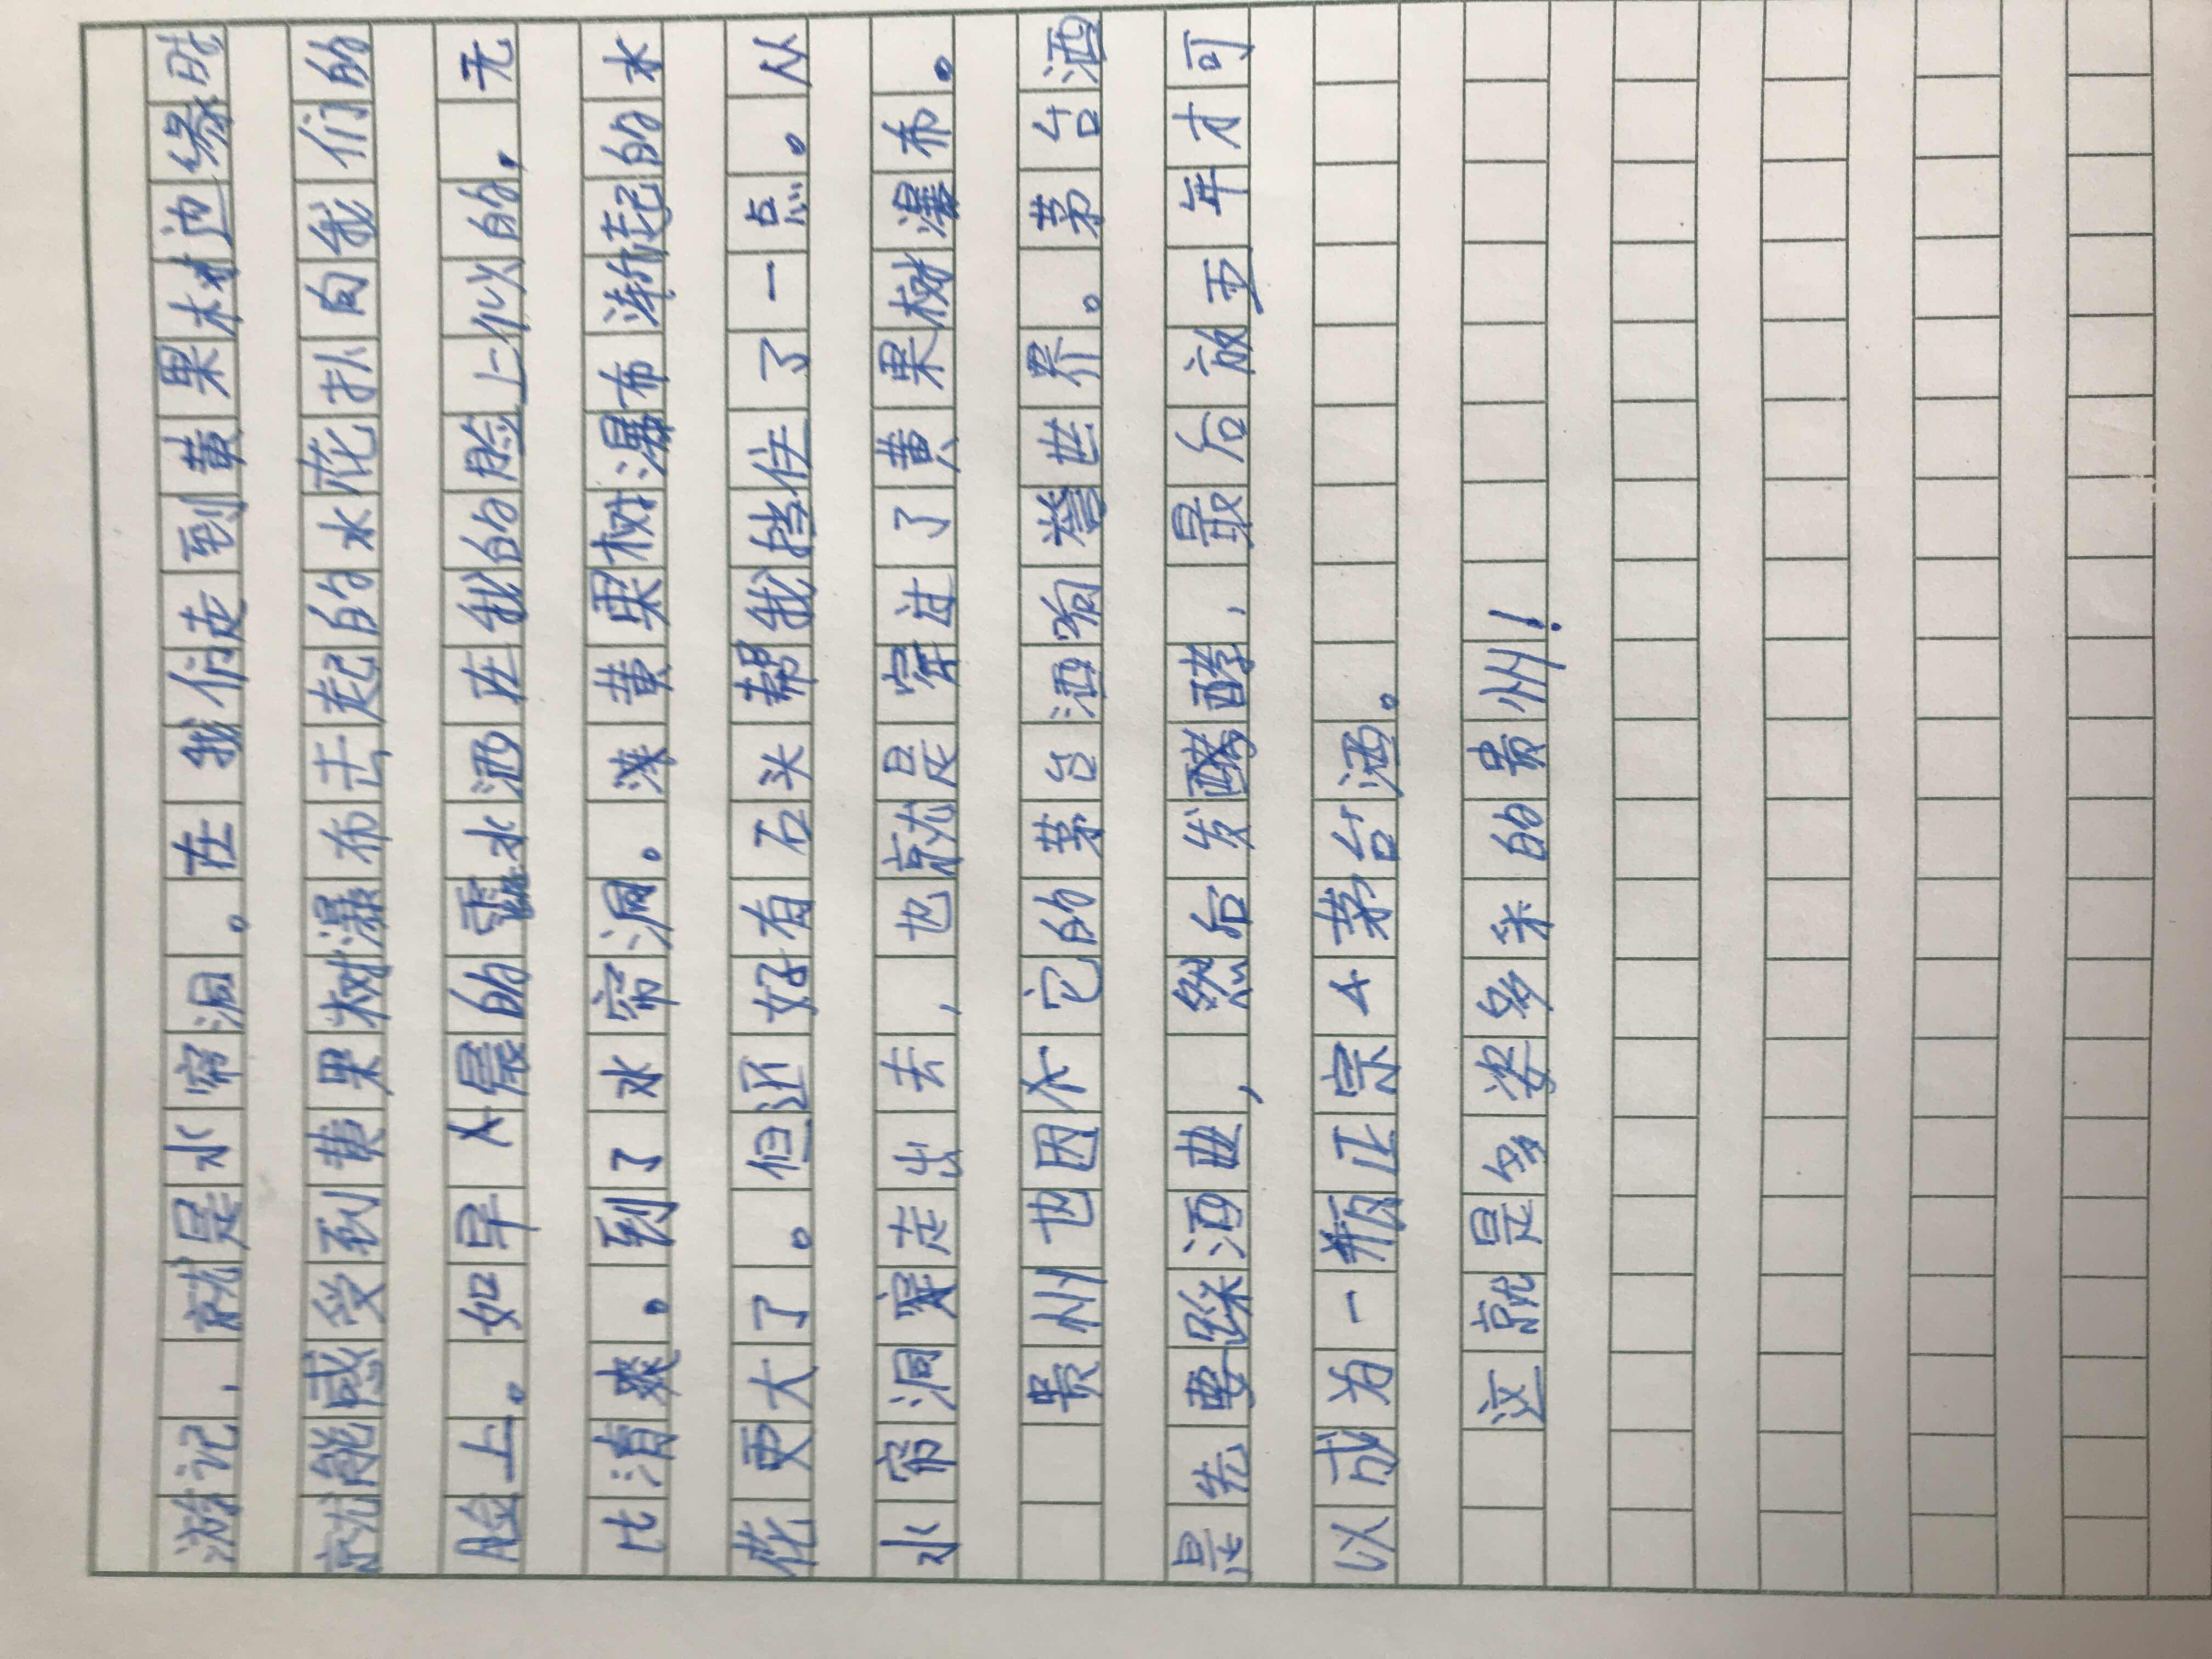 游记，就是水帘洞。在我们走到黄果树边缘时
就能感受到黄果树瀑布击起的水花扑向我们的
脸上。如早晨的露水洒在我的脸上似的，无
比清爽。到了水帘洞。黄果树瀑布溅起的水
花更大了。但还好有石头帮我挡住了一点。从
水帘洞穿走出去，也就是穿过了黄果树瀑布。
贵州也因它的茅台酒响誉世界。茅台酒
是先要踩酒曲，然后发酵，最后放五年才可
以成为一瓶正宗茅台酒。
这就是多姿多采的贵州！